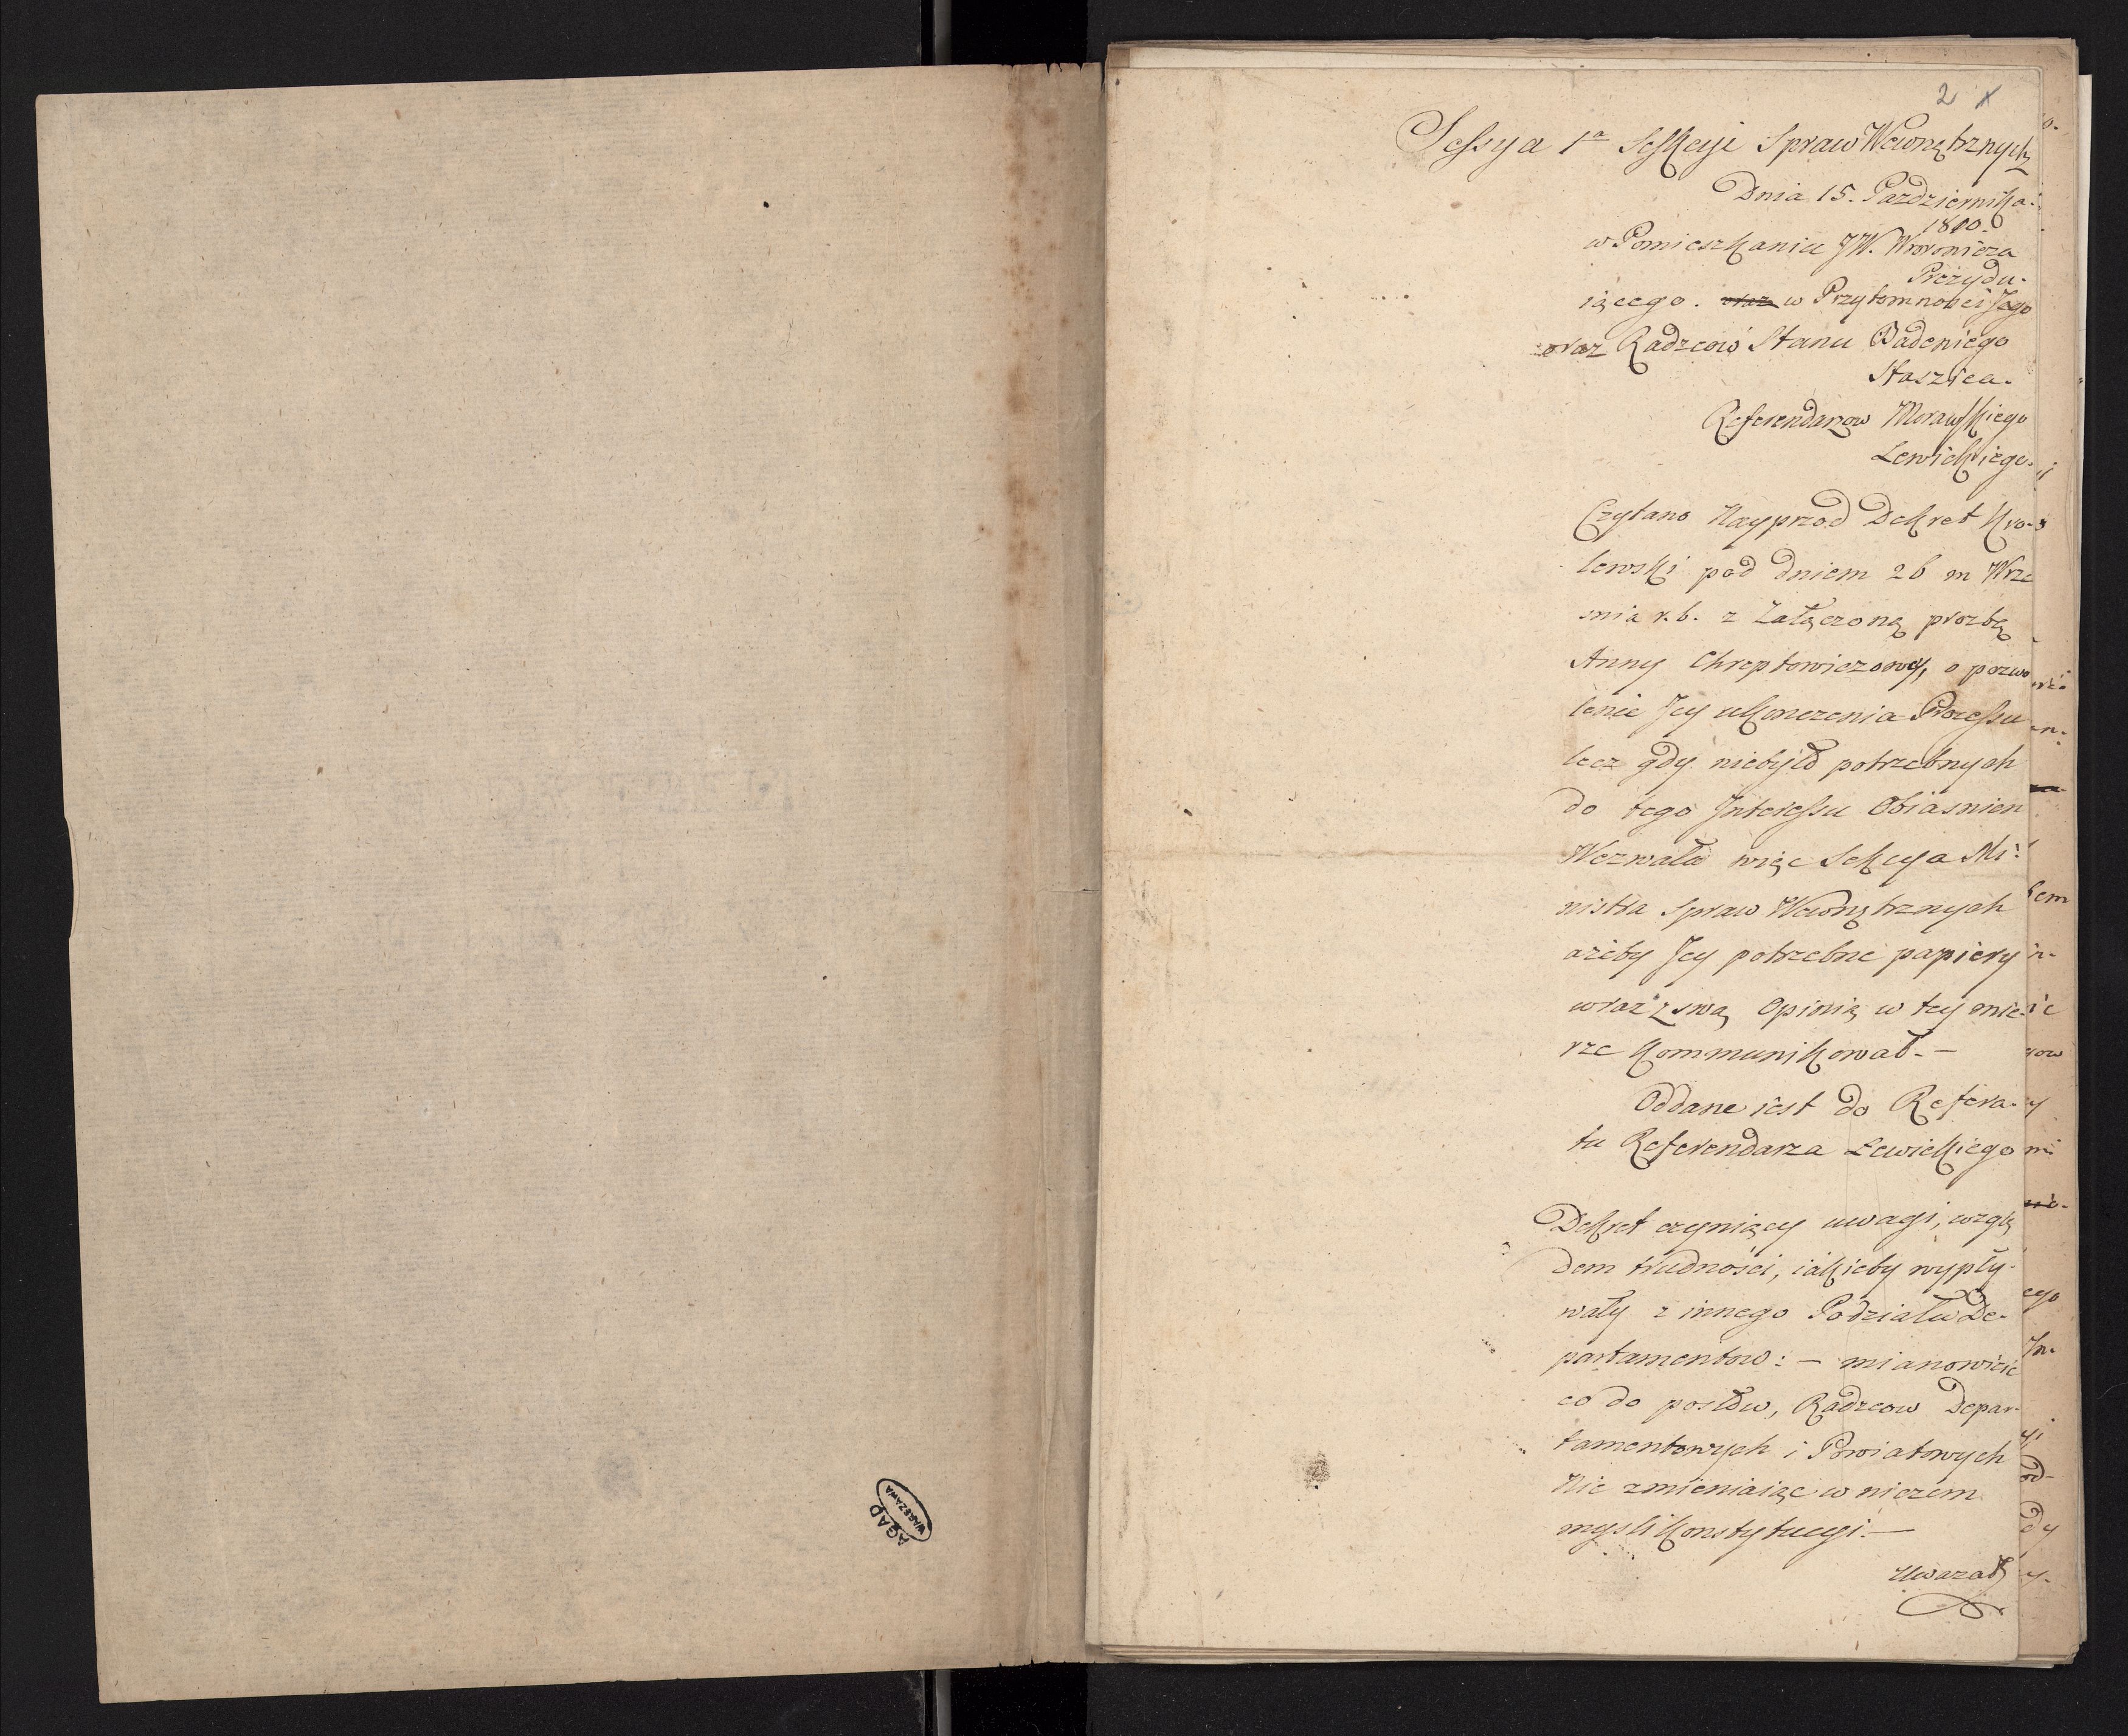 2 x
Sessya 1a Sekcyi Spraw Wewnętrznych
Dnia 15. Pazdziernika
1810.
w Pomieszkaniu JW. Woronicza
Prezydu-
iącego. oraz w Przytomnosci Jego
oraz Radzców Stanu Badeniego
Staszica.
Referendarzow Morawskiego
Lewickiego.
Czytano Nayprzod Dekret Kro-
lewski pod dniem 26 m Wrze
snia r. b. z Załączoną prozbą
Anny Chreptowiczowey, o pozwo
lenie Jey ukonczenia Processu
lecz gdy niebyło potrzebnych
do tego Interessu Obiasnien
Wezwała więc Sekcya Mi-
nistra Spraw Wewnętrznych
ażeby Jey potrzebne papiery
wraz z swą Opinią w tey mie-
rze Kommunikował. —
Oddane iest do Refera-
tu Referendarza Lewickiego
Dekret czyniący uwagi, wzglę
dem trudności, iakieby wypły-
wały z innego Podziału De-
partamentow: — mianowicie
co do posłow, Radzcow Depar-
tamentowych i Powiatowych
Nie zmieniaiąc w niczem
mysli Konstytucyi. —
Uwazał
AGAD
WARSZAWA